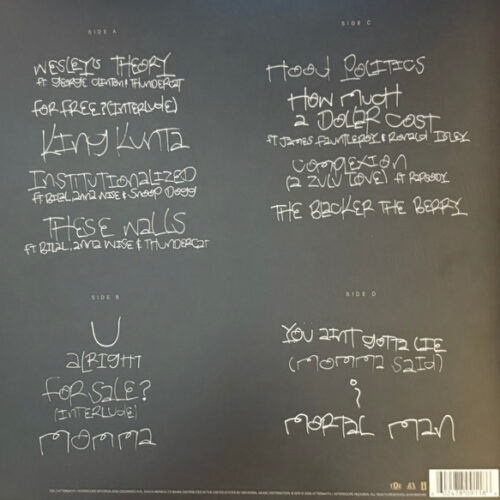 SIDE A
WESLEY'S THEORY
ft GEORGE CLINTON & THUNDERCAT
FOR FREE? (INTERLUDE)
KING KUNTA
INSTITUTIONALIZED
ft BILAL, ANNA WISE & SNOOP DOGG
THESE WALLS
ft BILAL, ANNA WISE & THUNDERCAT
SIDE B
U
ALRIGHT
FOR SALE?
(INTERLUDE)
MOMMA
SIDE C
HOOD POLITICS
HOW MUCH
A DOLLAR COST
ft JAMES FAUNTLEROY & RONALD ISLEY
COMPLEXION
(A ZULU LOVE) ft RAPSODY
THE BLACKER THE BERRY
SIDE D
YOU AINT GOTTA LIE
(MOMMA SAID)
i
MORTAL MAN